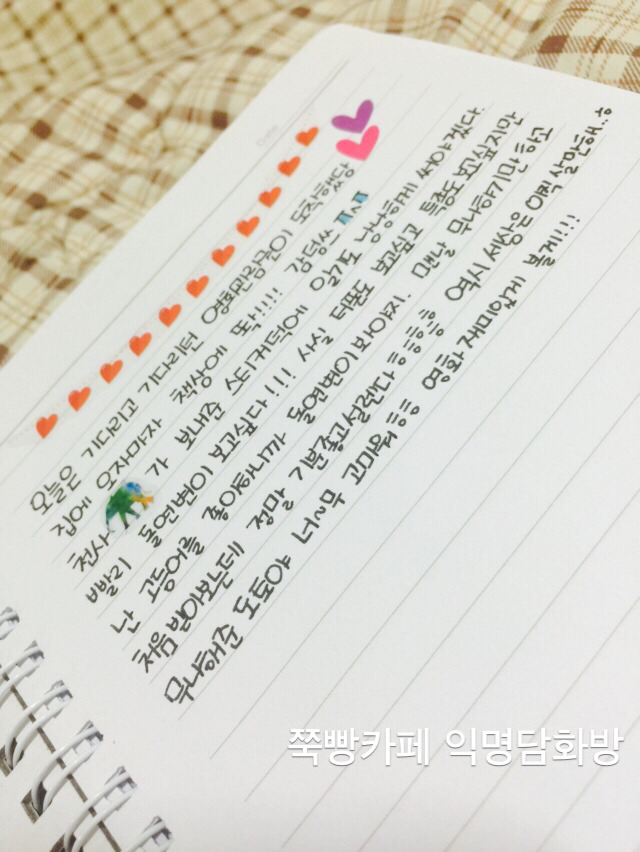 오늘은 기다리고 기다리던 영화관람권이 도착했땅
집에 오자마자 책상에 똭!!!! 감덩쓰 ㅠㅅㅠ
천사 가 보내준 스티커덕에 일기도 냥냥하게 써야겠다.
빨리 돌연변이 보고싶다!!!! 사실 더폰도 보고싶고 특종도 보고싶지만
난 고등어를 좋아하니까 돌연변이 봐야지. 맨날 무나하기만 하고
처음 받아보는데 정말 기분좋고설렌다ㅎㅎㅎㅎ 역시 세상은 아직 살만해..ㅎ
무나해준 도토야 너~무 고마워ㅎㅎ 영화 재미있게 볼게!!!!
쭉빵카페 익명담화방